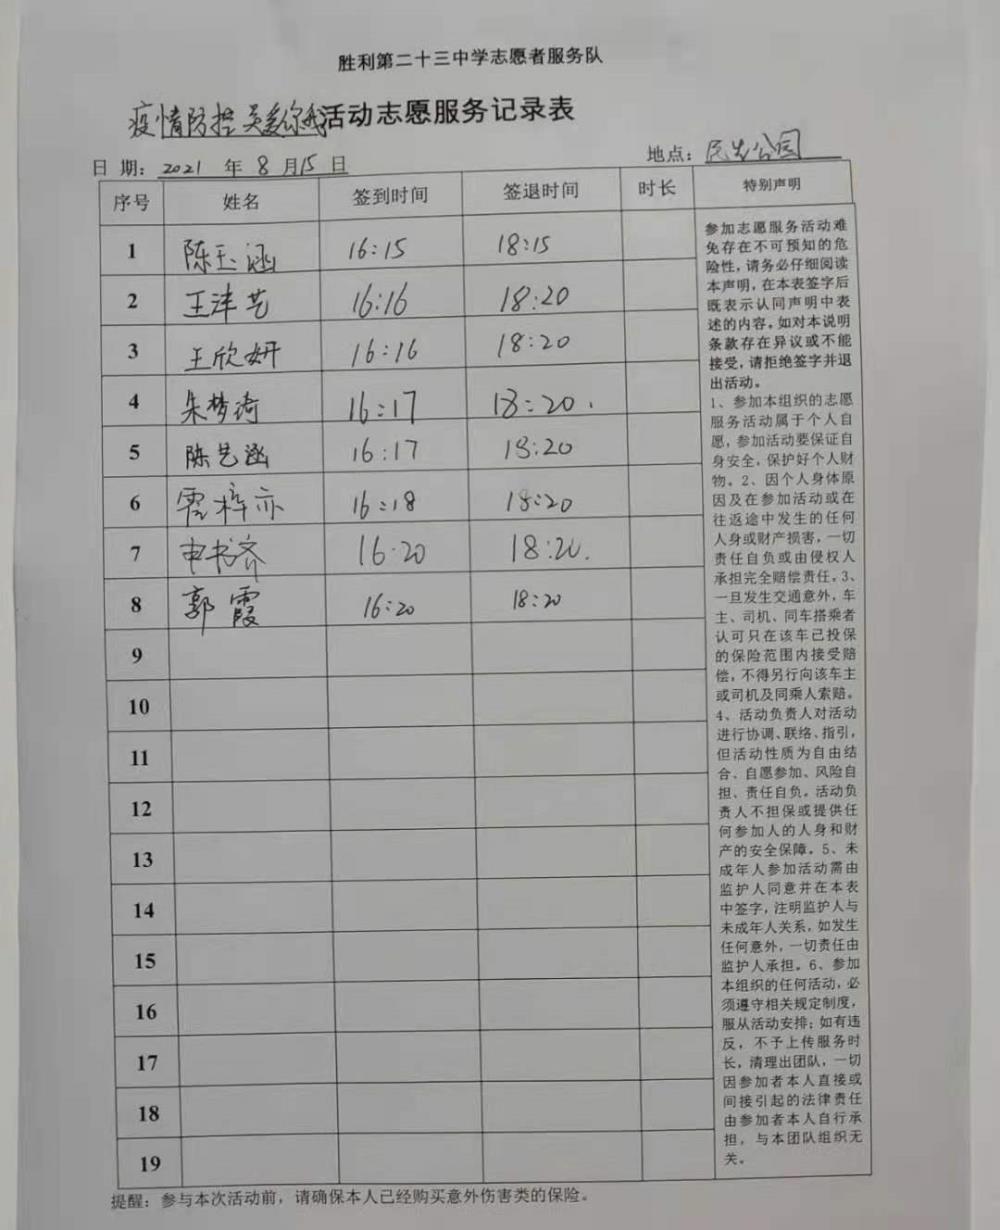 胜利第二十三中学志愿者服务队
疫情防控 关爱你我活动志愿服务记录表
日 期: 2021 年 8 月 15 日 地点: 公园
序号 姓名 签到时间 签退时间 时长 特别声明
1 陈玉涵 16:15 18:15
2 王沣艺 16:16 18:20
3 王欣妍 16:16 18:20
4 朱梦琦 16:17 18:20.
5 陈艺涵 16:17 18:20
6 梓亦 16:18 18:20
7 申书齐 16:20 18:20.
8 郭霞 16:20 18:20
9
10
11
12
13
14
15
16
17
18
19
参加志愿服务活动难
免存在不可预知的危
险性,请务必仔细阅读
本声明,在本表签字后
既表示认同声明中表
述的内容。如对本说明
条款存在异议或不能
接受,请拒绝签字并退
出活动。
1、参加本组织的志愿
服务活动属于个人自
愿,参加活动要保证自
身安全,保护好个人财
物。2、因个人身体原
因及在参加活动或在
往返途中发生的任何
人身或财产损害,一切
责任自负或由侵权人
承担完全赔偿责任。3、
一旦发生交通意外,车
主、司机、同车搭乘者
认可只在该车已投保
的保险范围内接受赔
偿,不得另行向该车主
或司机及同乘人索赔。
4、活动负责人对活动
进行协调、联络、指引,
但活动性质为自由结
合、自愿参加、风险自
担、责任自负。活动负
责人不担保或提供任
何参加人的人身和财
产的安全保障。5、未
成年人参加活动需由
监护人同意并在本表
中签字,注明监护人与
未成年人关系,如发生
任何意外,一切责任由
监护人承担。6、参加
本组织的任何活动,必
须遵守相关规定制度,
服从活动安排;如有违
反,不予上传服务时
长,清理出团队,一切
因参加者本人直接或
间接引起的法律责任
由参加者本人自行承
担,与本团队组织无
关。
提醒:参与本次活动前,请确保本人已经购买意外伤害类的保险。